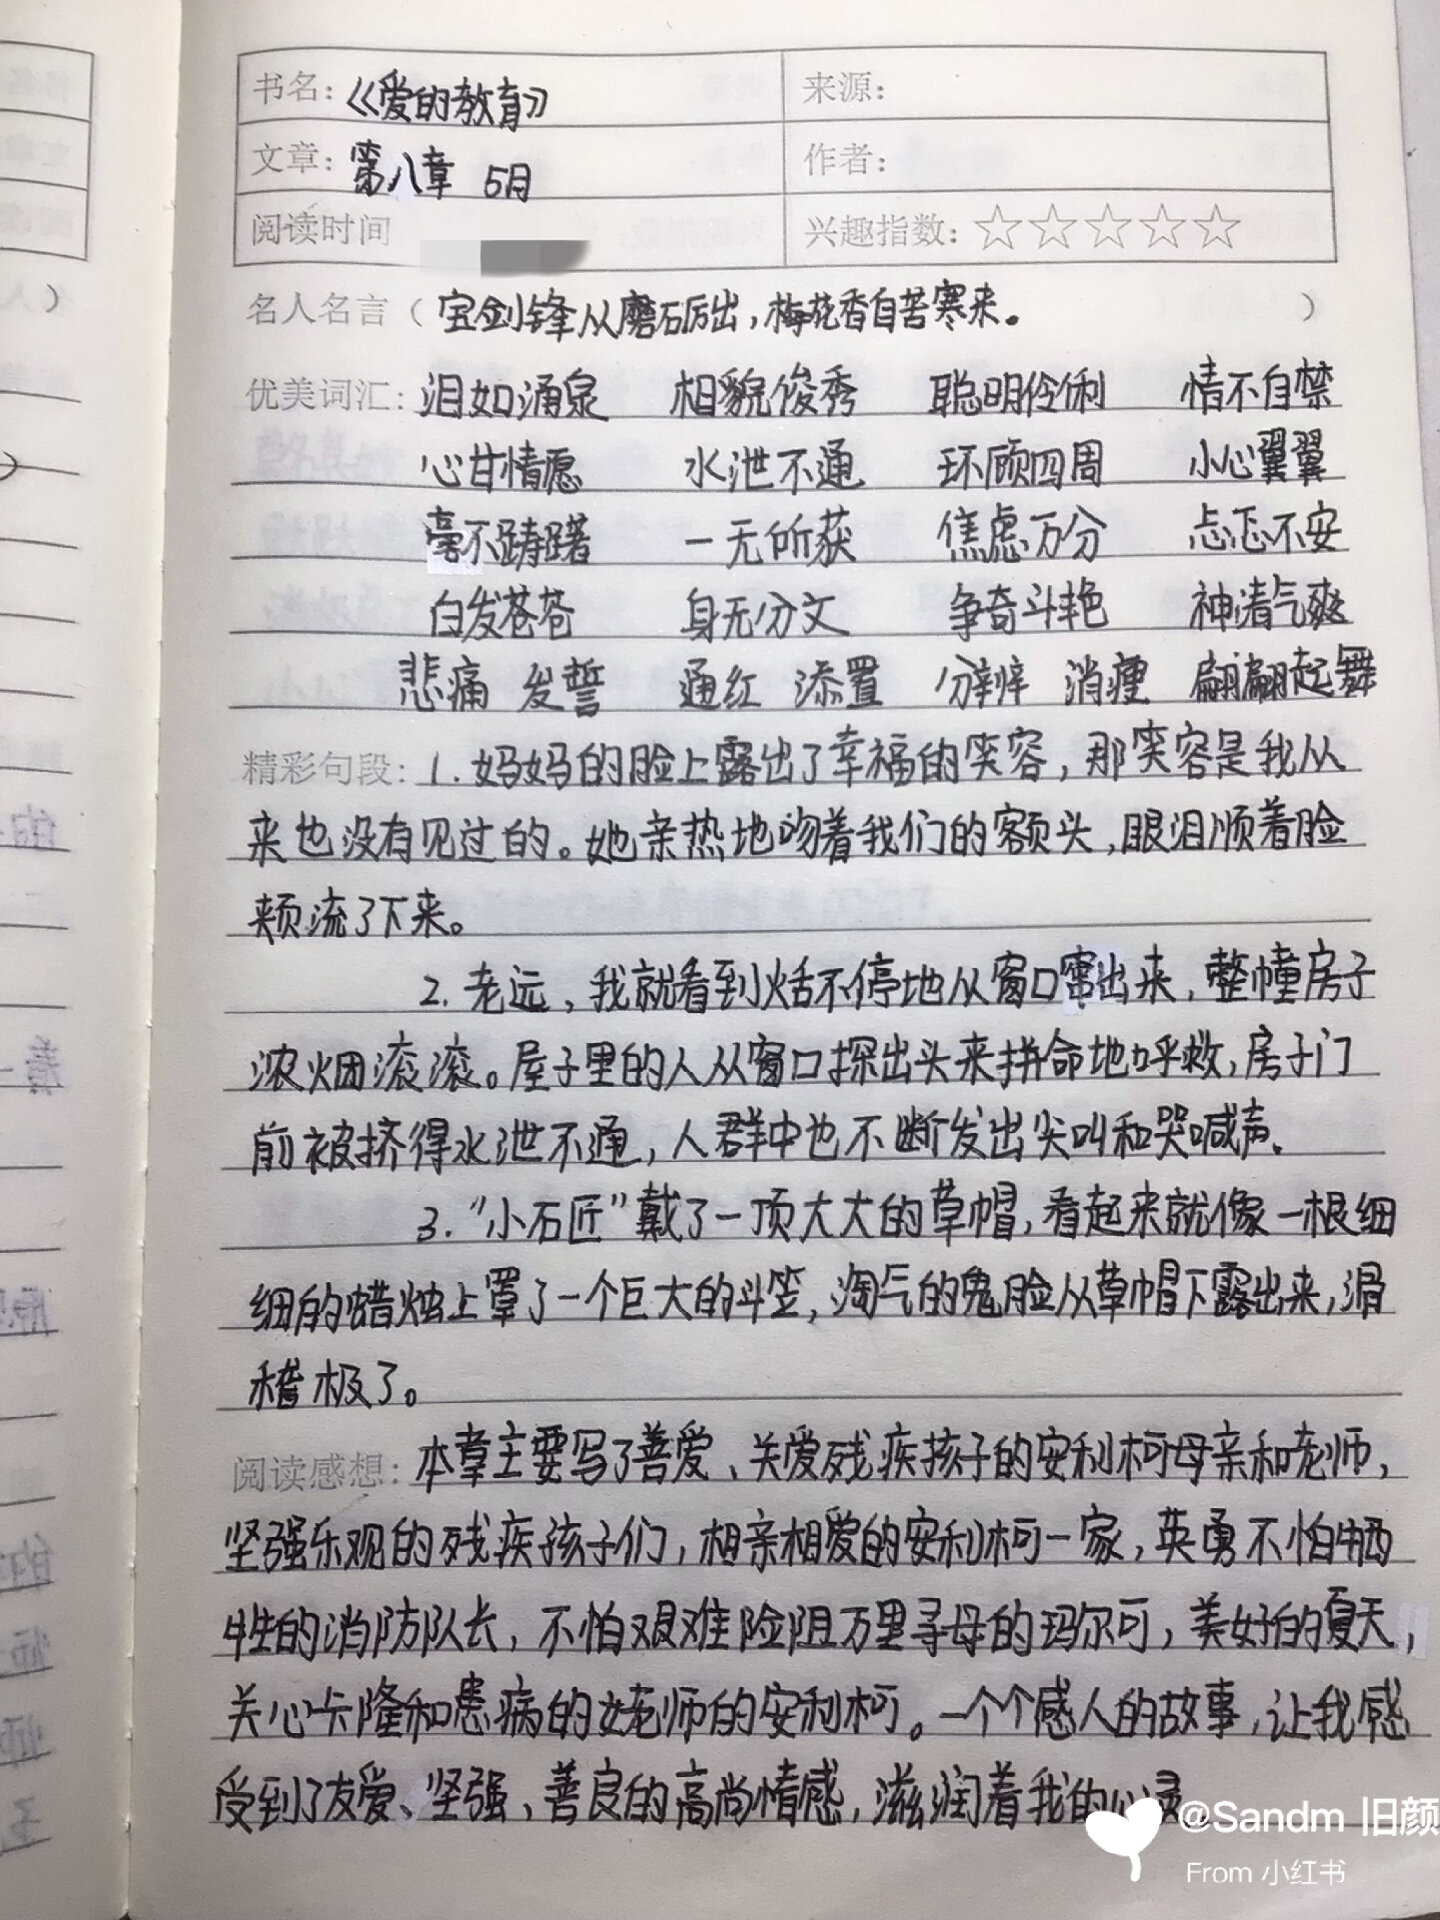 书名：《爱的教育》 来源：
文章：第八章 5月 作者：
阅读时间 兴趣指数：☆☆☆☆☆
名人名言（宝剑锋从磨砺出，梅花香自苦寒来。）
优美词汇：泪如涌泉 相貌俊秀 聪明伶俐 情不自禁
心甘情愿 水泄不通 环顾四周 小心翼翼
毫不踌躇 一无所获 焦虑万分 忐忑不安
白发苍苍 身无分文 争奇斗艳 神清气爽
悲痛 发誓 通红 添置 分辨 消瘦 翩翩起舞
精彩句段：1.妈妈的脸上露出了幸福的笑容，那笑容是我从
来也没有见过的。她亲热地吻着我们的额头，眼泪顺着脸
颊流了下来。
2.老远，我就看到火舌不停地从窗口窜出来，整幢房子
浓烟滚滚。屋子里的人从窗口探出头来拼命地呼救，房子门
前被挤得水泄不通，人群中也不断发出尖叫和哭喊声。
3.“小石匠”戴了一顶大大的草帽，看起来就像一根细
细的蜡烛上罩了一个巨大的斗笠，淘气的鬼脸从草帽下露出来，滑
稽极了。
阅读感想：本章主要写了善爱、关爱残疾孩子的安利柯母亲和老师，
坚强乐观的残疾孩子们，相亲相爱的安利柯一家，英勇不怕牺
牲的消防队长，不怕艰难险阻万里寻母的玛尔可，美好的夏天，
关心卡隆和患病的女老师的安利柯。一个个感人的故事，让我感
受到了友爱、坚强，善良的高尚情感，滋润着我的心灵
@Sandm 旧颜
From 小红书